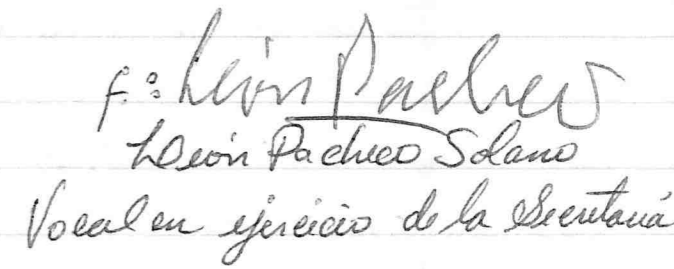 f.: León Pacheco
León Pacheco Solano
Vocal en ejercicio de la Secretaría